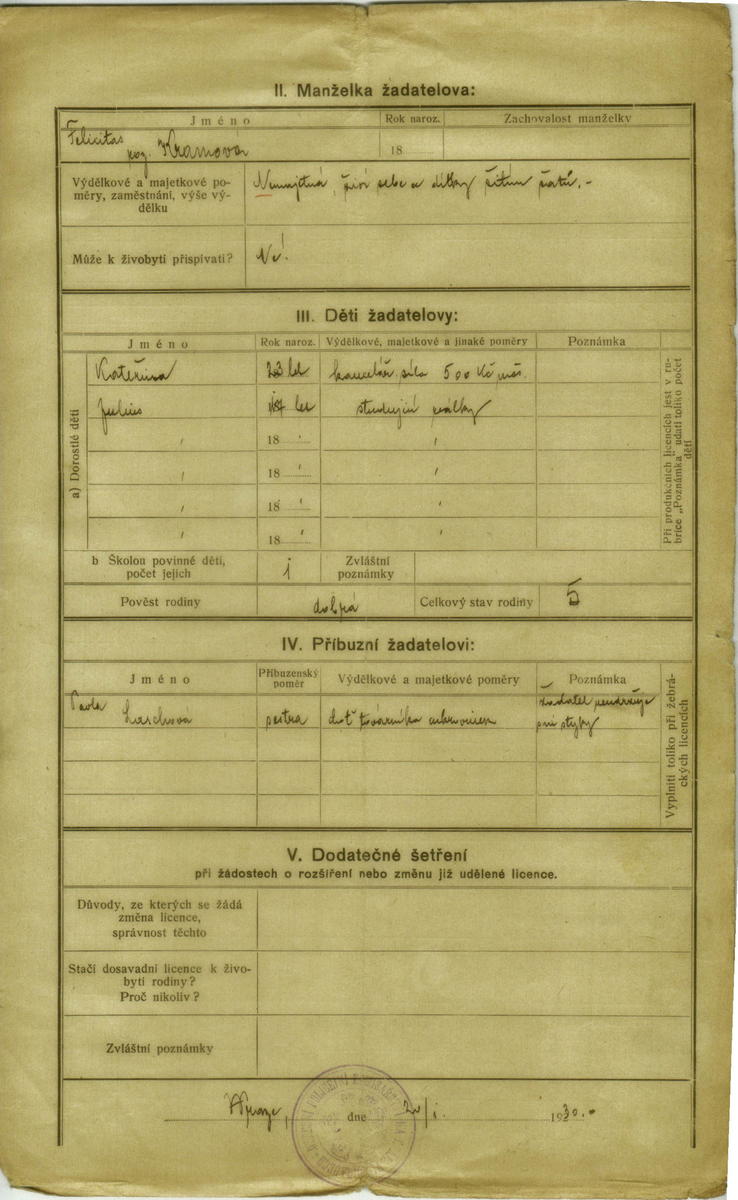 II. Manželka žadatelova:
Jméno
Rok naroz.
Zachovalost manželky
Felicitas
roz. Kramova
18
Výdělkové a majetkové po-
měry, zaměstnání, výše vý-
dělku
Nemajetná, živí sebe a dítky šitím šatů.-
Může k živobytí přispívati?
Ne!
III. Děti žadatelovy:
Jméno
Rok naroz.
Výdělkové, majetkové a jinaké poměry
Poznámka
a) Dorostlé děti
Kateřina
23 let
kancelář. síla 500 Kč měs.
Julius
let
studující
18
18
18
18
Při produkčních licencích jest v ru-
brice „Poznámka" udati toliko počet
dětí
b Školou povinné děti,
počet jejich
1
Zvláštní
poznámky
Pověst rodiny
dobrá
Celkový stav rodiny
5
IV. Příbuzní žadatelovi:
Jméno
Příbuzenský
poměr
Výdělkové a majetkové poměry
Poznámka
Pavla
Laschová
sestra
choť továrníka cukrovinek
žadatel neudržuje
styky
Vyplniti toliko při žebrá-
ckých licencích
V. Dodatečné šetření
při žádostech o rozšíření nebo změnu již udělené licence.
Důvody, ze kterých se žádá
změna licence,
správnost těchto
Stačí dosavadní licence k živo-
bytí rodiny?
Proč nikoliv?
Zvláštní poznámky
V Praze, dne 20/1. 1930.